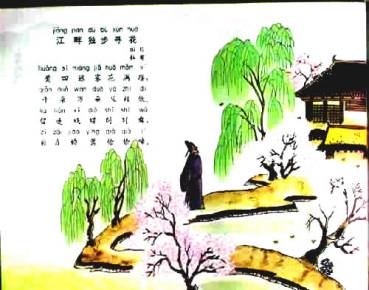 jiāng pàn dú bù xún huā
江畔独步寻花
杜甫
huáng sì niáng jiā huā mǎn
黄四娘家花满蹊，
qiān duǒ wàn duǒ yā zhī dī
千朵万朵压枝低。
liú lián xì dié shí shí wǔ
留连戏蝶时时舞，
zì zài jiāo yīng qià qià
自在娇莺恰恰啼。